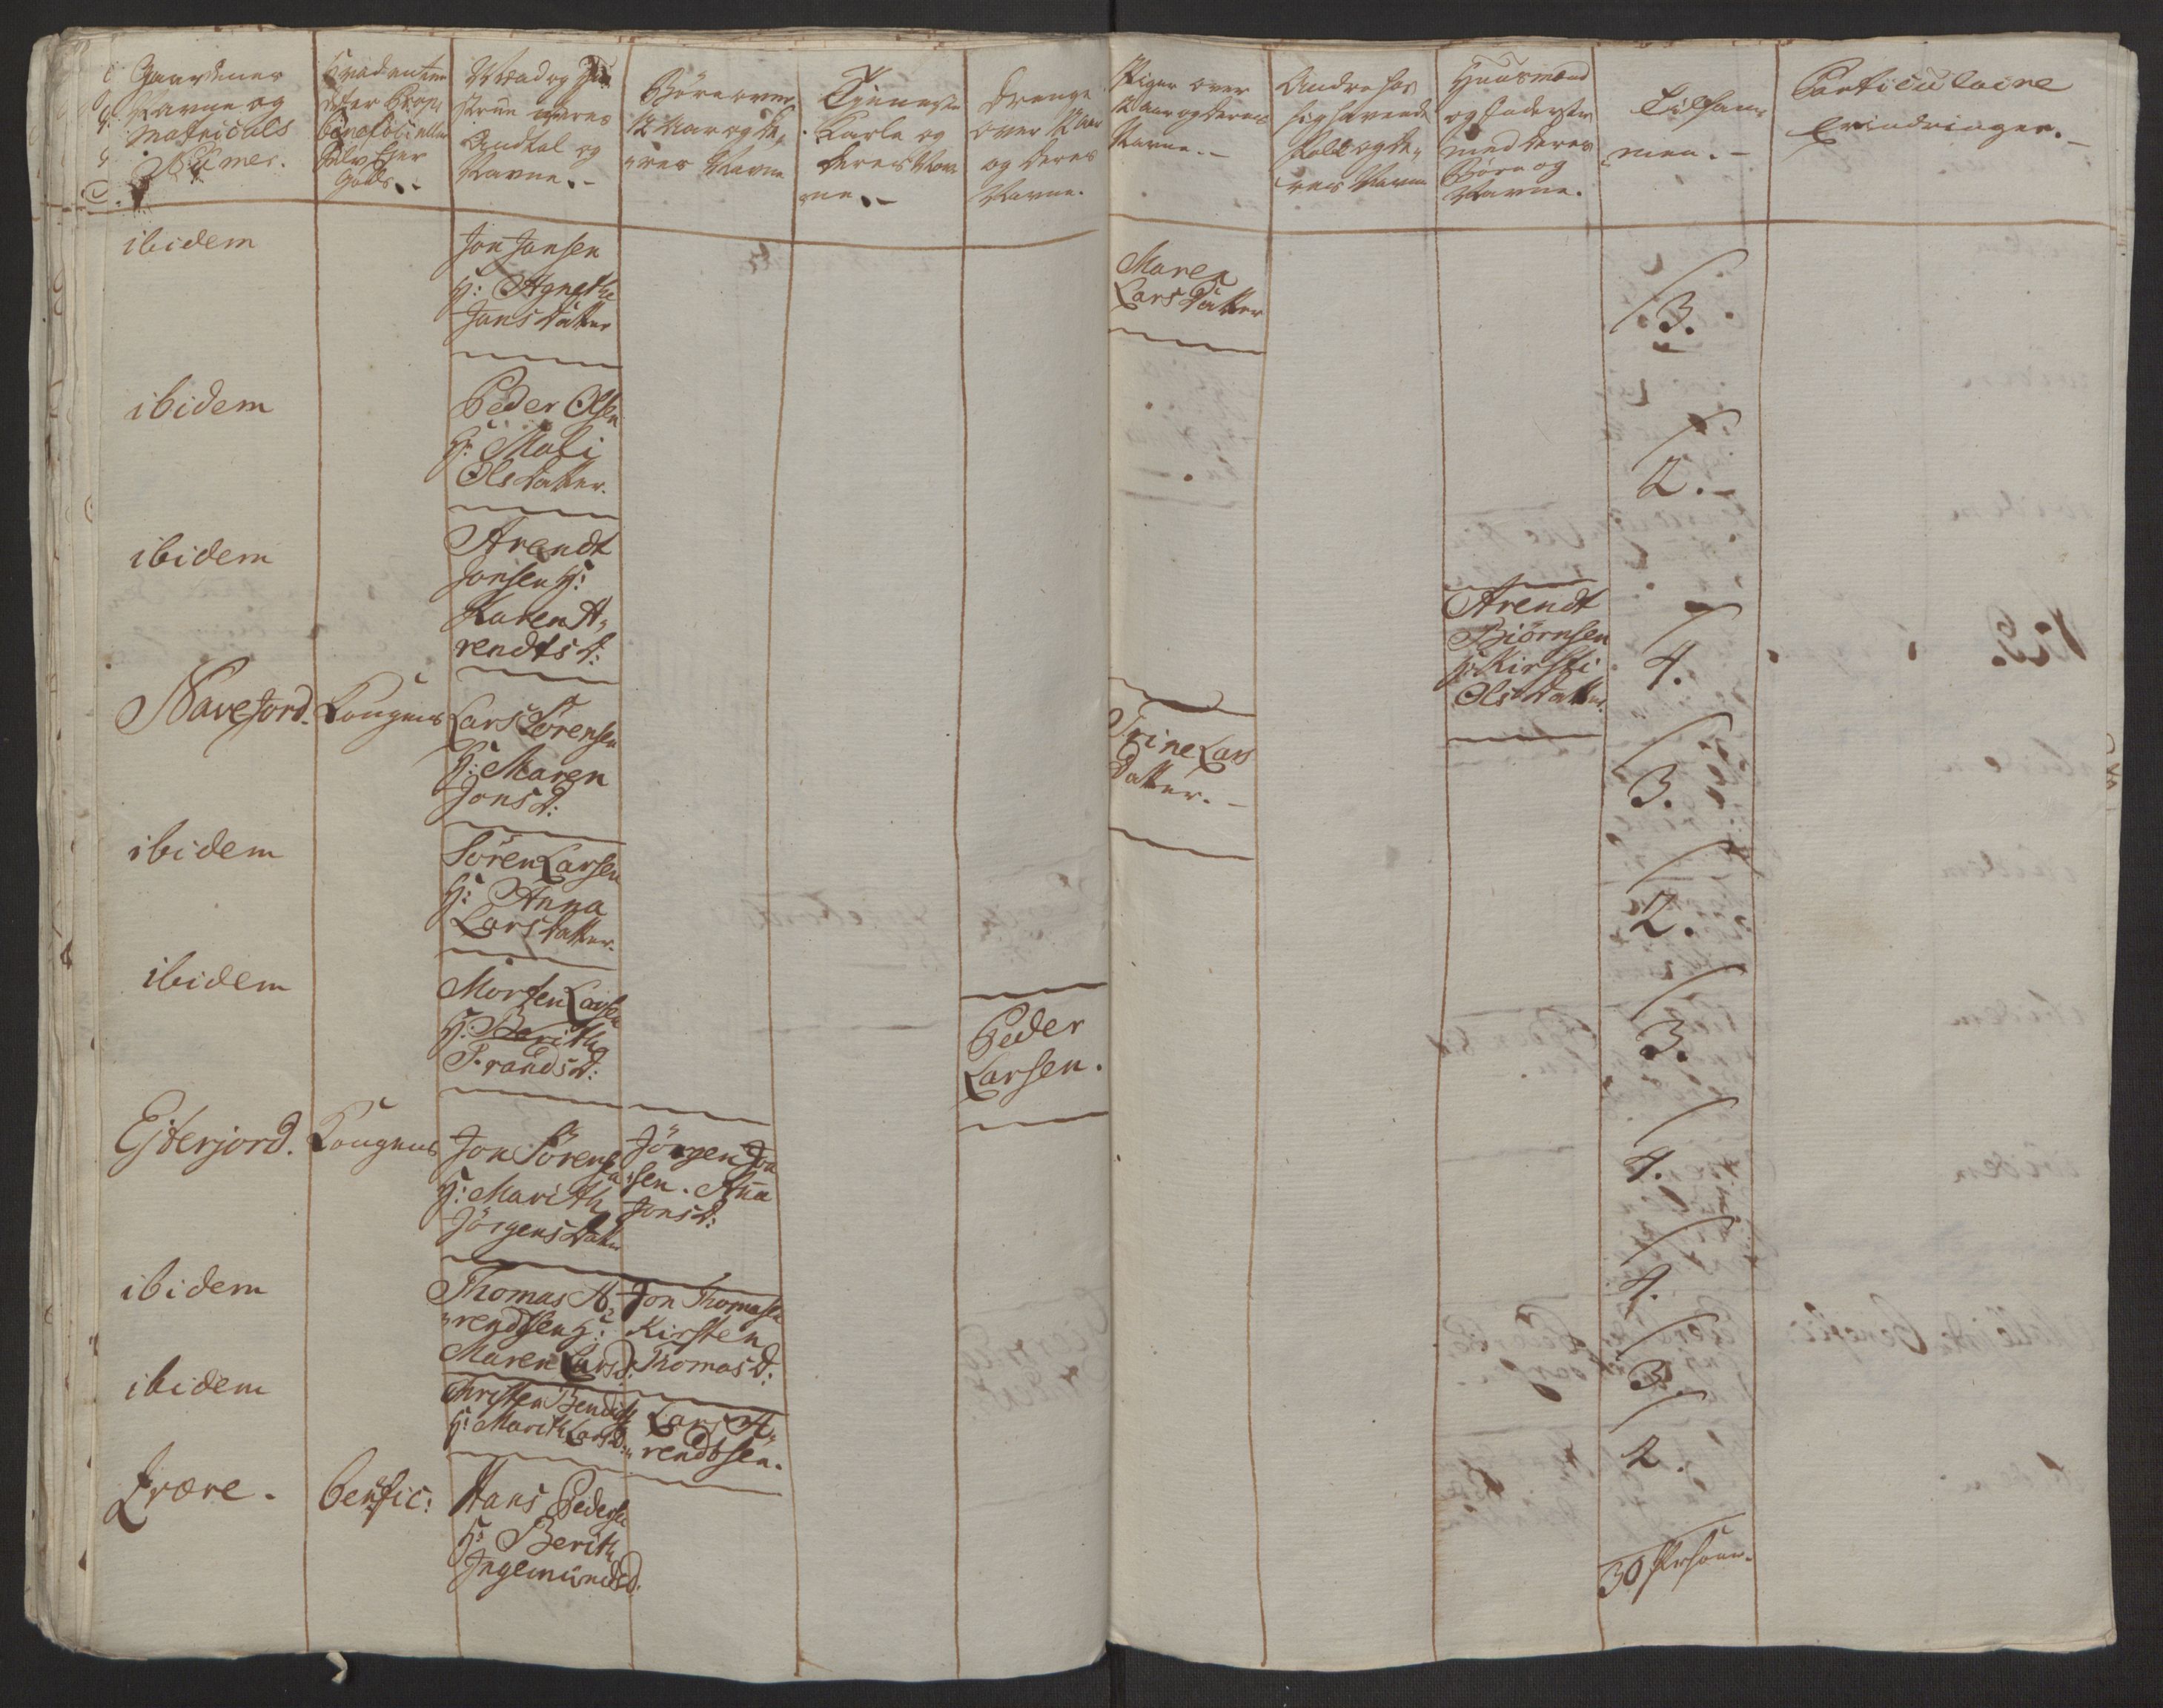 Gaardenes
Navne og
Matriculs
Numer.
Gods.
Mænd og
Andtal og
Navne.
Børn over
12 Aar og de,
res Navne
Tieneste
Karle og
deres Nav
ne.
Drenge
over 12 Aar
og deres
Navne.
Piger over
12 Aar og deres
Navne.
Andre hos
sig havende
Folk og de,
res Navne
Huusmænd
og Inderster
med deres
Børn og
Navne.
Tilsam
men.
Particulaire
Erindringer.
ibidem
Jon Jonsen
H: Agnethe
Jons datter
Maren
Lars datter
3.
ibidem
Peder Olsen
H: Mali
Ols datter.
2.
ibidem
Arendt
Jonsen H:
Karen A,
rendts d:
Arendt
Biörnsen
H: Kirsti
Ols datter.
4.
Navejord. Kongens
Lars Sörensen
H: Maren
Jons d:
Trine Lars
datter.
3.
ibidem
Sören Larsen
H: Anna
Lars datter.
2.
ibidem
Morten Larsen
H: Berith
Trands d:
Peder
Larsen.
3.
Ejterjord. Kongens
Jon Sörensen
H: Marith
Jörgens datter
Jörgen Jon
sen. Aña
Jons d:
4.
ibidem
Thomas A,
rendtsen H:
Maren Lars d:
Jon Thomasen
Kirsten
Thomas d:
4.
ibidem
Christen Bendix
H: Marith Lars d:
Lars A,
rendtsen.
3.
Prære. Benefic:
Hans Pedersen
H: Berith
Ingemunds d.
2.
30 Persone.